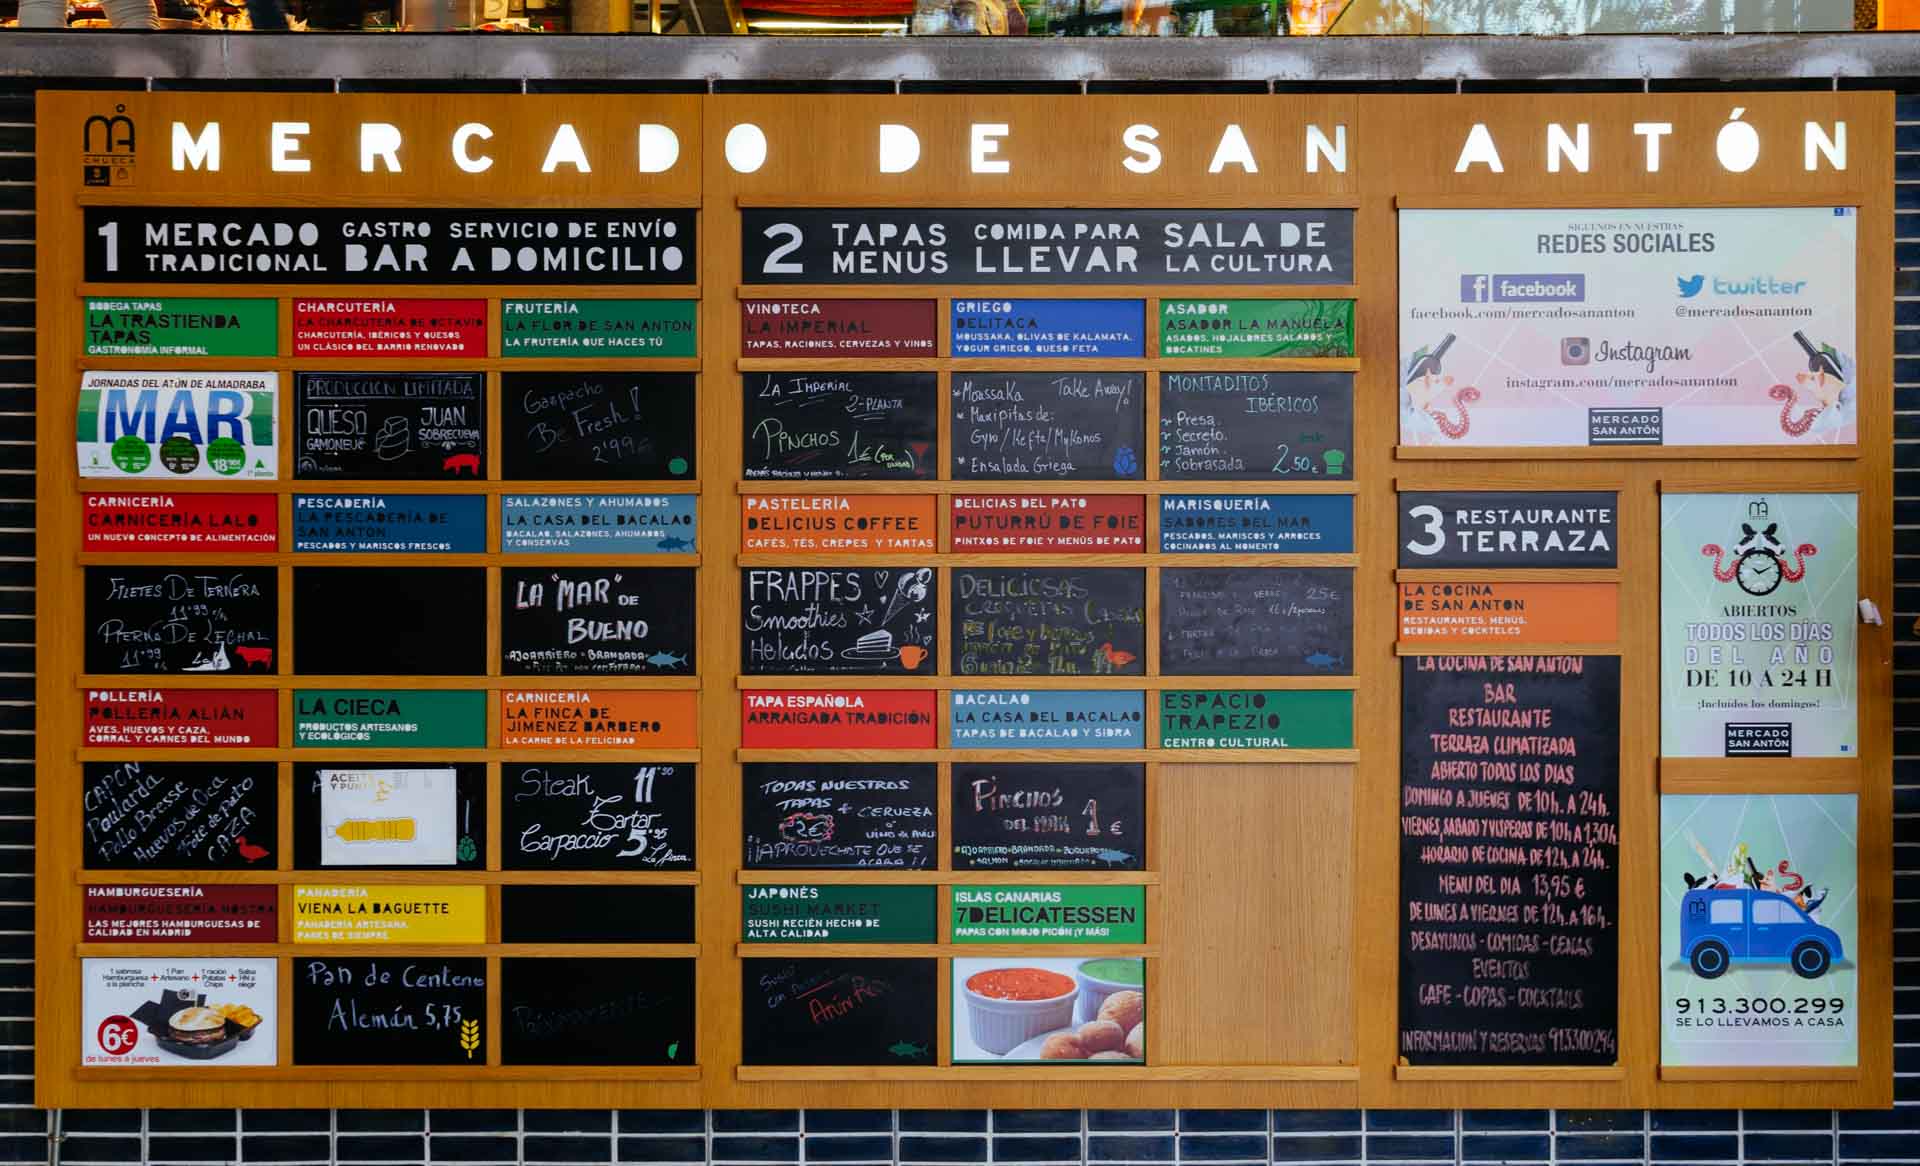 CHUECA
MERCADO DE SAN ANTÓN
1 MERCADO TRADICIONAL
GASTRO BAR
SERVICIO DE ENVÍO A DOMICILIO
BODEGA TAPAS
LA TRASTIENDA
TAPAS
GASTRONOMÍA INFORMAL
CHARCUTERÍA
LA CHARCUTERÍA DE OCTAVIO
CHARCUTERÍA, IBÉRICOS Y QUESOS
UN CLÁSICO DEL BARRIO RENOVADO
FRUTERÍA
LA FLOR DE SAN ANTÓN
LA FRUTERÍA QUE HACES TÚ
JORNADAS DEL ATÚN DE ALMADRABA
MAR
18'90€
1ª planta
PRODUCCION LIMITADA
QUESO
GAMONEU
JUAN
SOBRECUEVA
Gazpacho
Be Fresh!
2'99€
CARNICERÍA
CARNICERÍA LALO
UN NUEVO CONCEPTO DE ALIMENTACIÓN
PESCADERÍA
LA PESCADERÍA DE
SAN ANTÓN
PESCADOS Y MARISCOS FRESCOS
SALAZONES Y AHUMADOS
LA CASA DEL BACALAO
BACALAO, SALAZONES, AHUMADOS
Y CONSERVAS
FILETES DE TERNERA
11'99
PIERNA DE LECHAL
11'99
LA "MAR" DE
BUENO
AJOARRIERO - BRANDADA
POLLERÍA
POLLERÍA ALIÁN
AVES, HUEVOS Y CAZA.
CORRAL Y CARNES DEL MUNDO
LA CIECA
PRODUCTOS ARTESANOS
Y ECOLÓGICOS
CARNICERÍA
LA FINCA DE
JIMENEZ BARBERO
LA CARNE DE LA FELICIDAD
CAPON
Poularda
Pollo Bresse
Huevos de Oca
Foie de pato
CAZA
ACEITE
Y PUNTO
Steak 11'50
Tartar
Carpaccio 5'95
La finca
HAMBURGUESERÍA
HAMBURGUESERÍA NOSTRA
LAS MEJORES HAMBURGUESAS DE
CALIDAD EN MADRID
PANADERÍA
VIENA LA BAGUETTE
PANADERÍA ARTESANA.
PANES DE SIEMPRE
1 sabrosa Hamburguesa a la plancha + 1 Pan Artesano + 1 ración Patatas Chips + Salsa HN a elegir
6€
de lunes a jueves
Pan de Centeno
Alemán 5,75
PRÓXIMAMENTE
2 TAPAS MENUS
COMIDA PARA LLEVAR
SALA DE LA CULTURA
VINOTECA
LA IMPERIAL
TAPAS, RACIONES, CERVEZAS Y VINOS
GRIEGO
DELITACA
MOUSSAKA, OLIVAS DE KALAMATA,
YOGUR GRIEGO, QUESO FETA
ASADOR
ASADOR LA MANUELA
ASADOS, HOJALDRES SALADOS Y
BOCATINES
LA IMPERIAL
2-PLANTA
PINCHOS 1€
Moussaka Take Away!
Maxipitas de:
Gyro/Kefta/Mykonos
Ensalada Griega
MONTADITOS
IBÉRICOS
Presa.
Secreto.
Jamón.
Sobrasada 2,50€
PASTELERÍA
DELICIUS COFFEE
CAFÉS, TÉS, CREPES Y TARTAS
DELICIAS DEL PATO
PUTURRÚ DE FOIE
PINTXOS DE FOIE Y MENÚS DE PATO
MARISQUERÍA
SABORES DEL MAR
PESCADOS, MARISCOS Y ARROCES
COCINADOS AL MOMENTO
FRAPPES
Smoothies
Helados
DELICIOSAS
CROQUETAS
25€
TAPA ESPAÑOLA
ARRAIGADA TRADICIÓN
BACALAO
LA CASA DEL BACALAO
TAPAS DE BACALAO Y SIDRA
ESPACIO
TRAPEZIO
CENTRO CULTURAL
TODAS NUESTRAS
TAPAS + CERVEZA
2€
¡¡APROVECHATE QUE SE
ACABA!!
PINCHOS
DEL MAR 1€
AJOARRIERO BRANDADA
SALMON
JAPONÉS
SUSHI MARKET
SUSHI RECIÉN HECHO DE
ALTA CALIDAD
ISLAS CANARIAS
7DELICATESSEN
PAPAS CON MOJO PICÓN ¡Y MÁS!
SÍGUENOS EN NUESTRAS
REDES SOCIALES
facebook
twitter
facebook.com/mercadosananton
@mercadosananton
Instagram
instagram.com/mercadosananton
MERCADO
SAN ANTÓN
3 RESTAURANTE
TERRAZA
LA COCINA
DE SAN ANTON
RESTAURANTES, MENÚS,
BEBIDAS Y COCKTELES
LA COCINA DE SAN ANTON
BAR
RESTAURANTE
TERRAZA CLIMATIZADA
ABIERTO TODOS LOS DIAS
DOMINGO A JUEVES DE 10h. A 24h.
VIERNES, SABADO Y VISPERAS DE 10h A 1,30h.
HORARIO DE COCINA DE 12h. A 24h.
MENU DEL DIA 13,95 €
DE LUNES A VIERNES DE 12h. A 16h.
DESAYUNOS - COMIDAS - CENAS
EVENTOS
CAFE - COPAS - COCKTAILS
INFORMACION Y RESERVAS 913300294
ABIERTOS
TODOS LOS DÍAS
DEL AÑO
DE 10 A 24 H
¡Incluidos los domingos!
MERCADO
SAN ANTÓN
913.300.299
SE LO LLEVAMOS A CASA